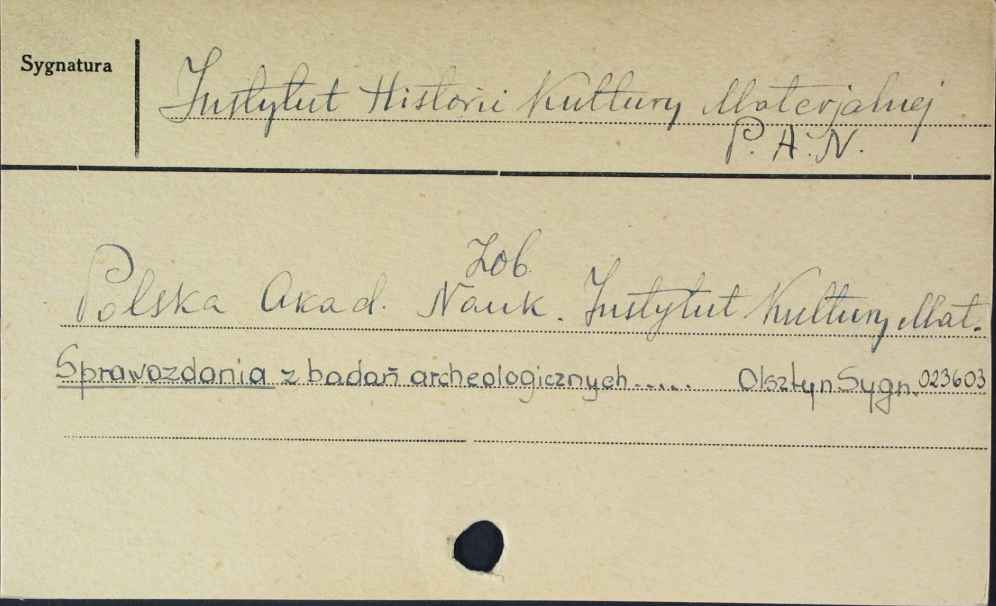 Sygnatura
Instytut Historii Kultury Materjalnej
P. A. N.
Zob.
Polska Akad. Nauk. Instytut Kultury Mat.
Sprawozdania z badań archeologicznych ..... Olsztyn Sygn. 023603